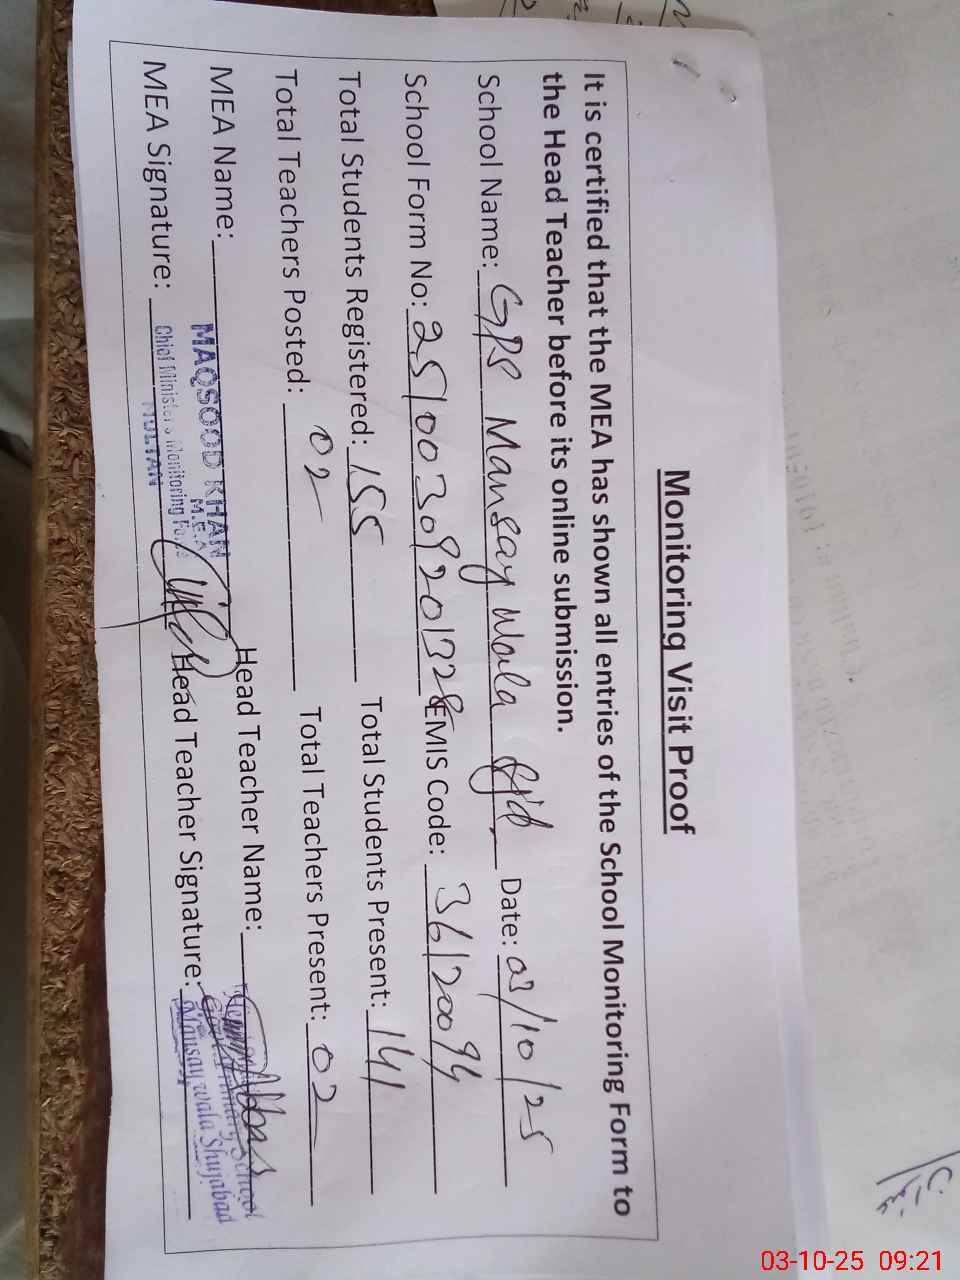 Monitoring Visit Proof
It is certified that the MEA has shown all entries of the School Monitoring Form to
the Head Teacher before its online submission.
School Name: GPS Mansay Wala Sjd Date: 03/10/25
School Form No: 25100309201328 EMIS Code: 36120094
Total Students Registered: 155 Total Students Present: 141
Total Teachers Posted: 02 Total Teachers Present: 02
MEA Name: MAQSOOD KHAN Head Teacher Name:
M.E.A
MEA Signature: Chief Minister's Monitoring Force Head Teacher Signature:
MULTAN
School
Mansay wala Shujabad
03-10-25 09:21